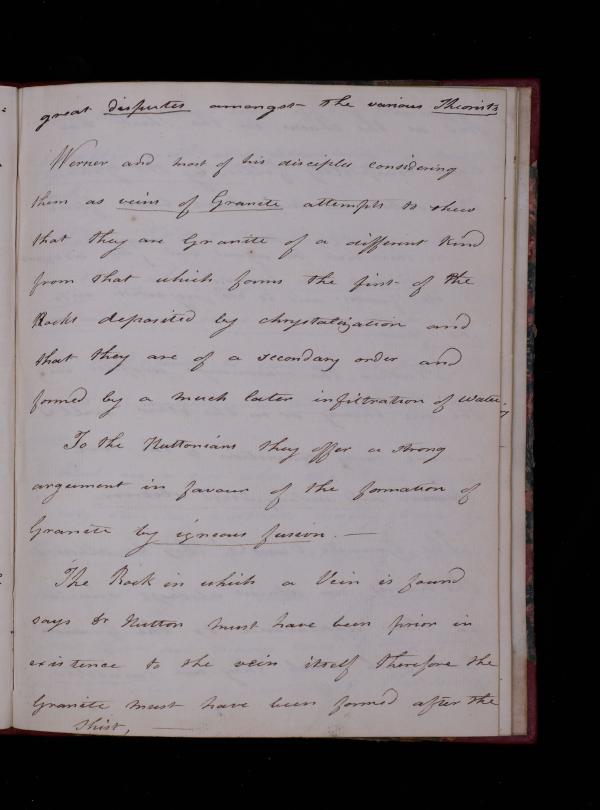 great disputes amongst the various Theorists
Werner and most of his disciples considering
them as veins of Granite attempts to shew
that they are Granite of a different kind
from that which forms the first of the
Rocks deposited by chrystalization and
that they are of a secondary order and
formed by a much later infiltration of water.
To the Huttonians they offer a strong
argument in favour of the formation of
Granite by igneous fusion. —
The Rock in which a Vein is found
says Dr Hutton must have been prior in
existence to the vein itself therefore the
Granite must have been formed after the
Shist, —